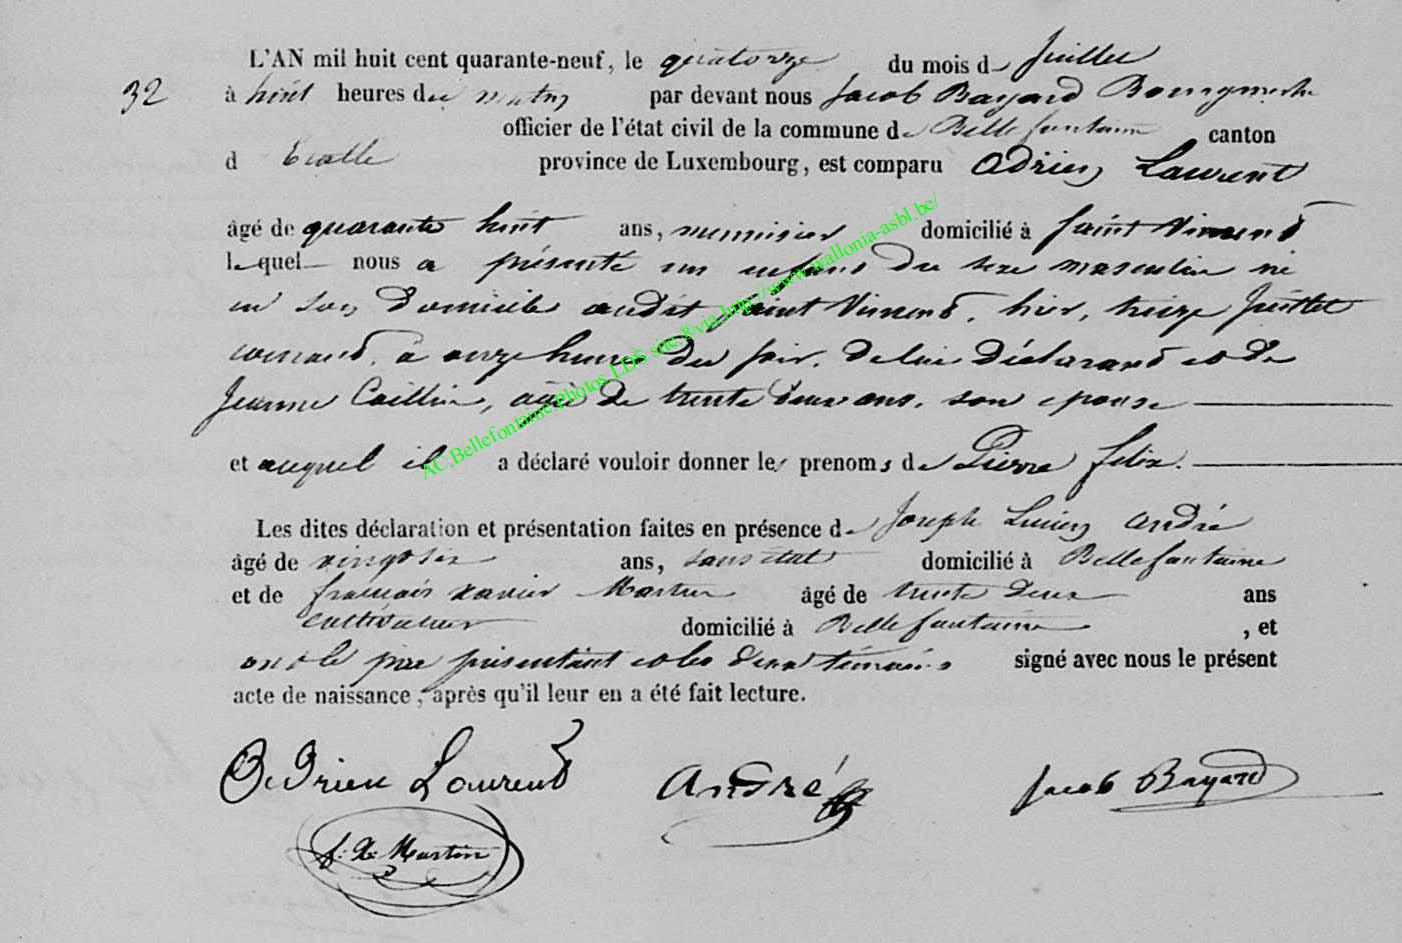 L'AN mil huit cent quarante-neuf, le quatorze du mois de Juillet
32 à huit heures du matin par devant nous Jacob Bayard Bourgmestre
officier de l'état civil de la commune de Bellefontaine canton
d Etalle province de Luxembourg, est comparu Adrien Laurent
âgé de quarante huit ans, menuisier domicilié à Saint Vincent
lequel nous a présenté un enfant du sexe masculin né
en son domicile audit Saint Vincent, hier, treize Juillet
courant, à onze heures du soir, de lui déclarant et de
Jeanne Collin, agée de trente deux ans, son epouse
et auquel il a déclaré vouloir donner les prenoms de Pierre felix.
Les dites déclaration et présentation faites en présence de Joseph Lucien André
âgé de vingt six ans, sans état domicilié à Bellefontaine
et de francois xavier Martin âgé de trente deux ans
cultivateur domicilié à Bellefontaine , et
ont le père présentant et les deux témoins signé avec nous le présent
acte de naissance, après qu'il leur en a été fait lecture.
Adrien Laurent André Jacob Bayard
f. X. Martin
AC.Bellefontaine.Photos.LDS site.®via http://www.wallonia-asbl.be/